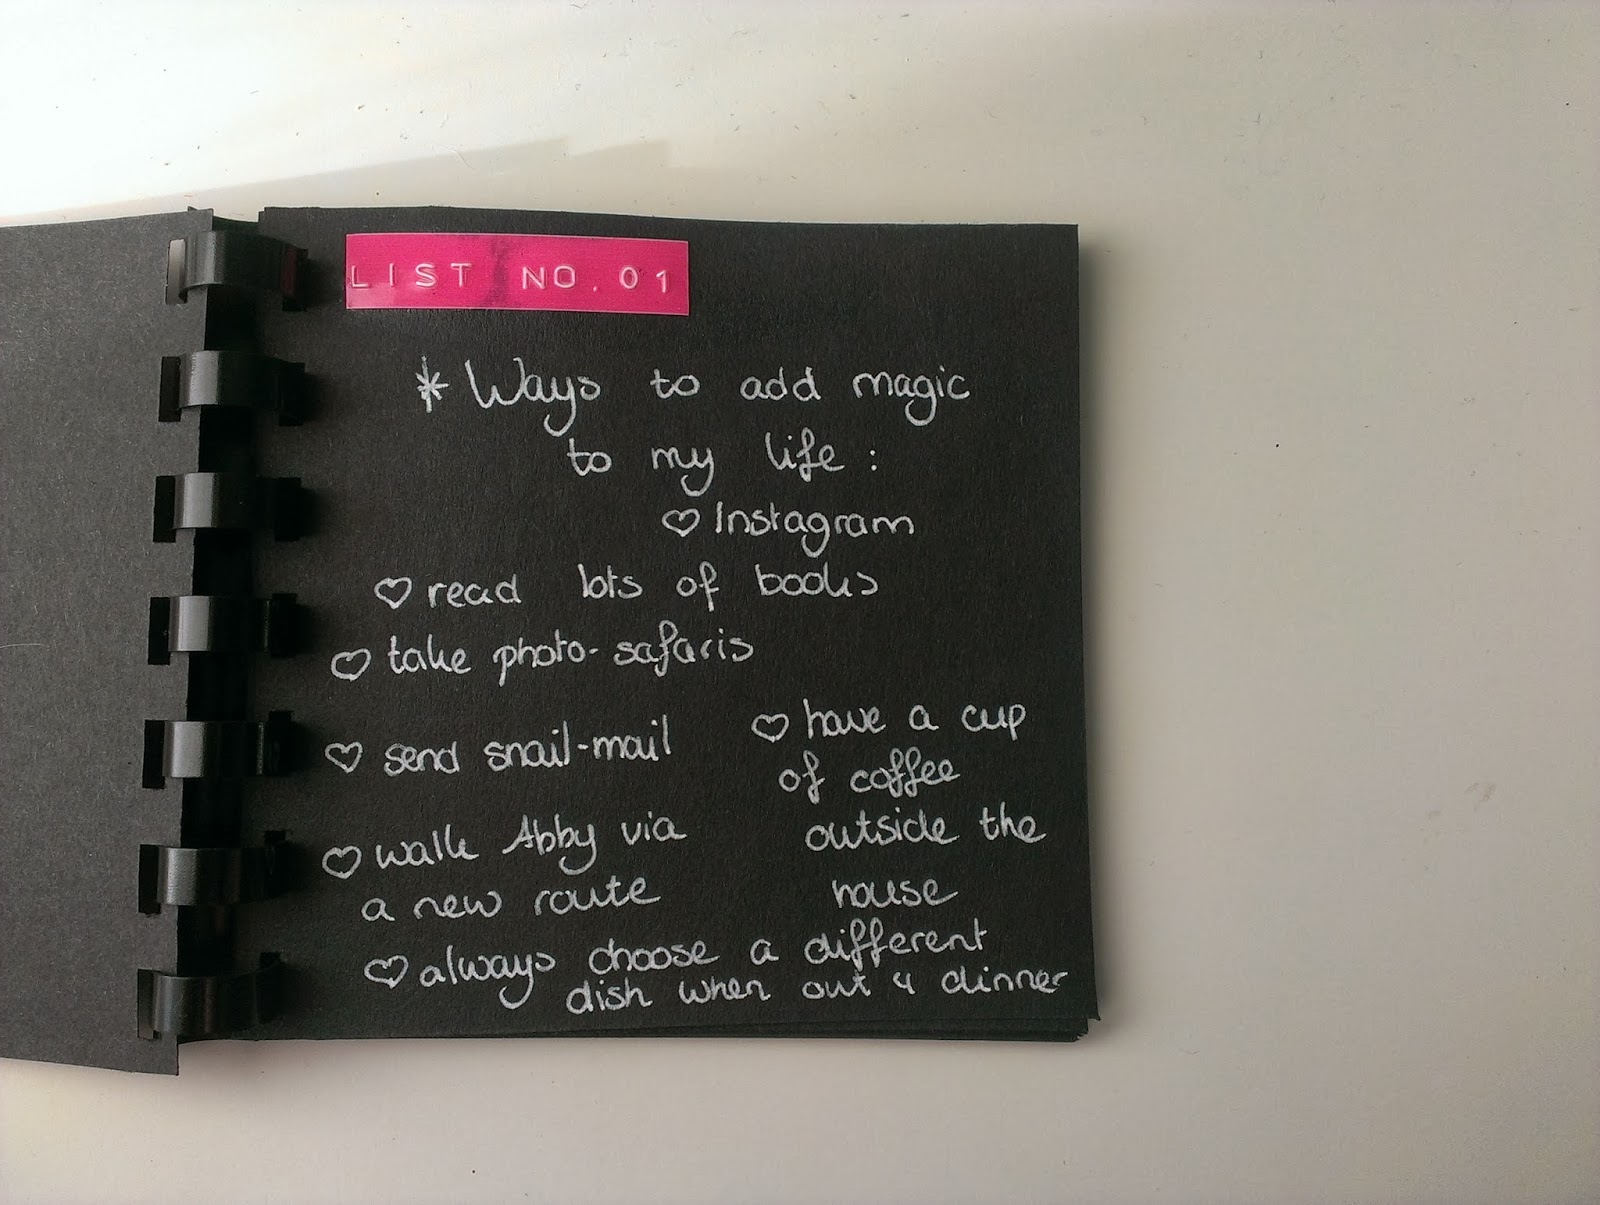 LIST NO. 01
* Ways to add magic
to my life :
♡ Instagram
♡ read lots of books
♡ take photo-safaris
♡ send snail-mail
♡ have a cup
of coffee
outside the
house
♡ walk Abby via
a new route
♡ always choose a different
dish when out 4 dinner